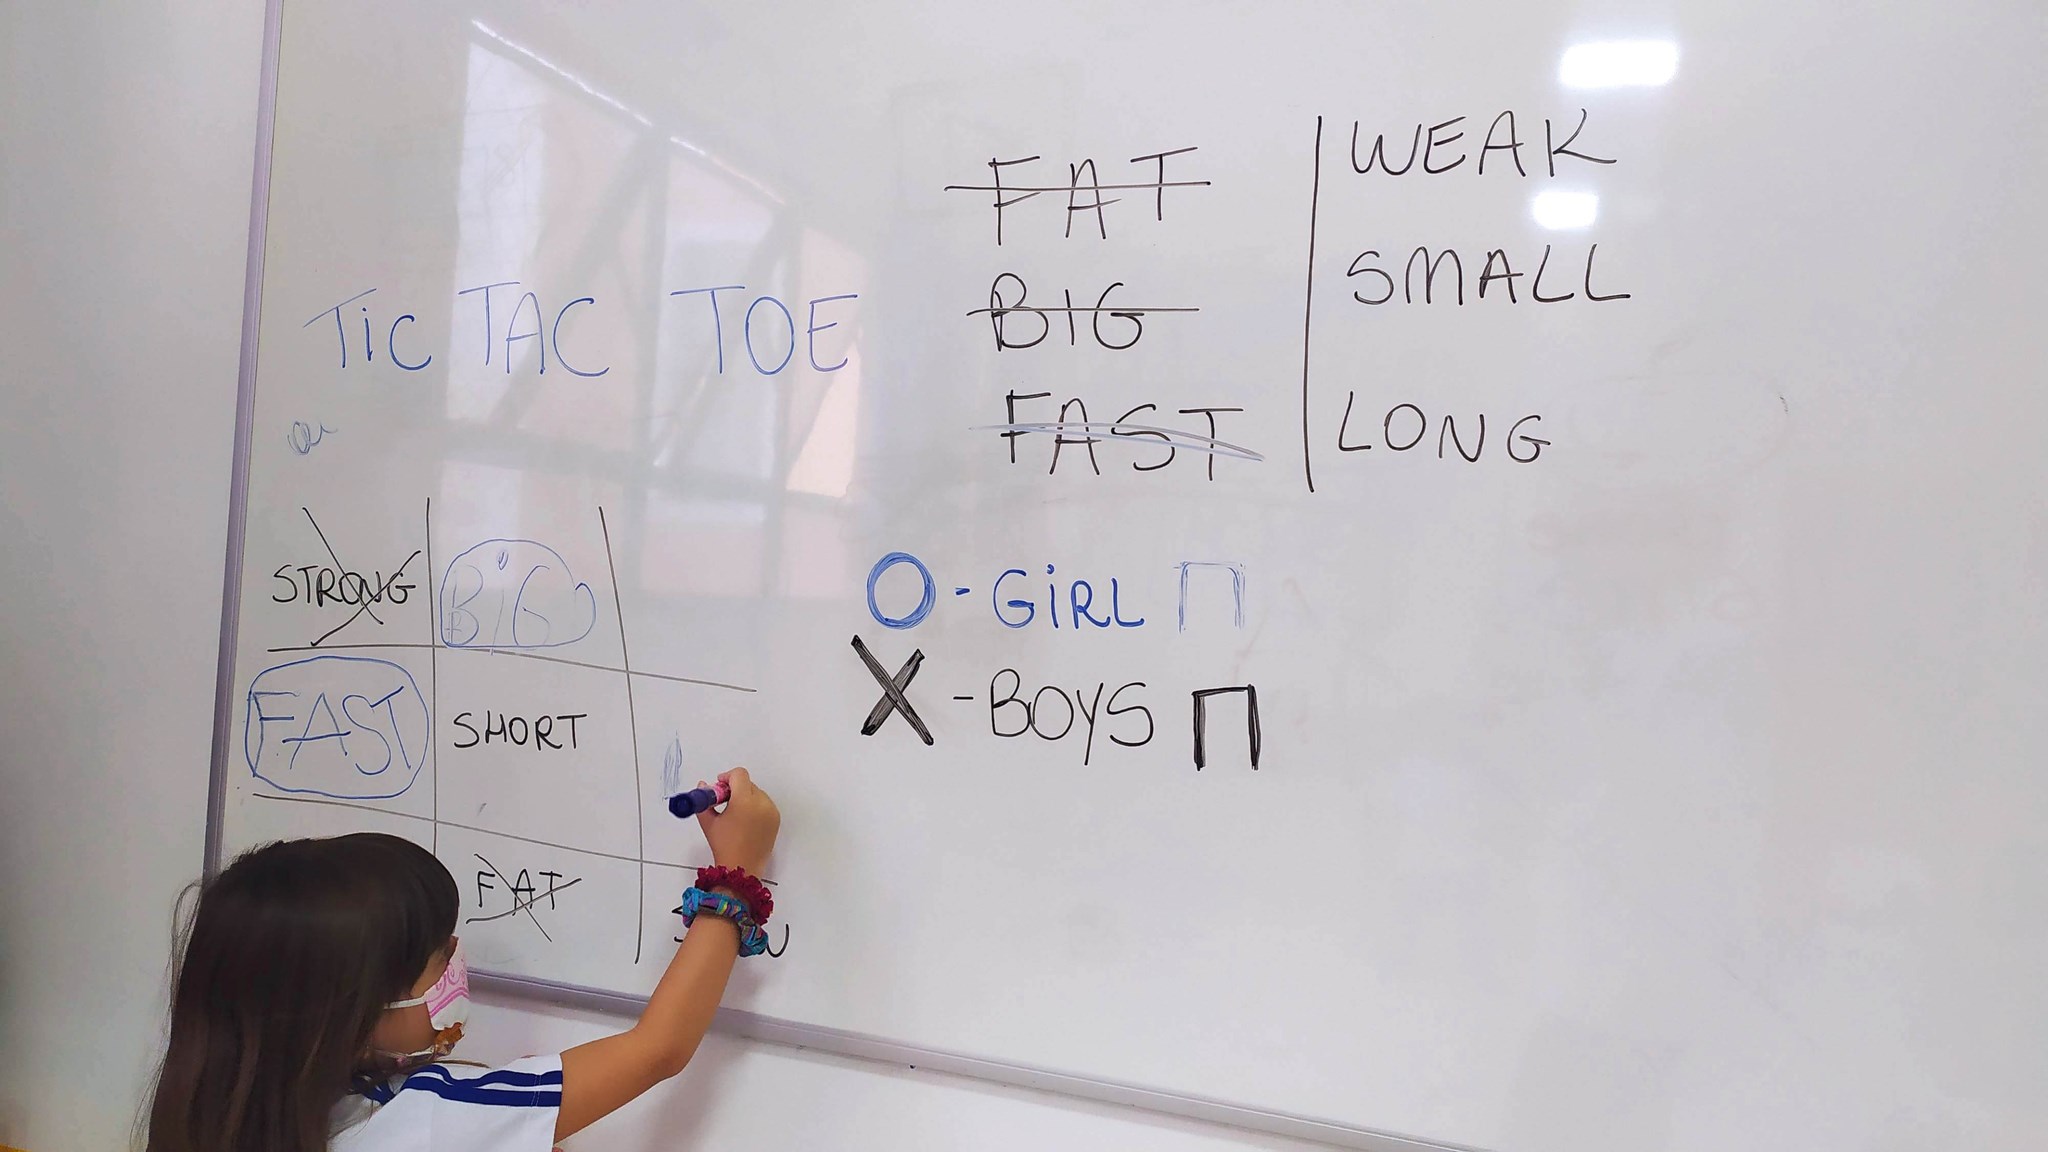 TIC TAC TOE
FAT
BIG
FAST
WEAK
SMALL
LONG
STRONG BIG
FAST SHORT
FAT
O - GIRL
X - BOYS